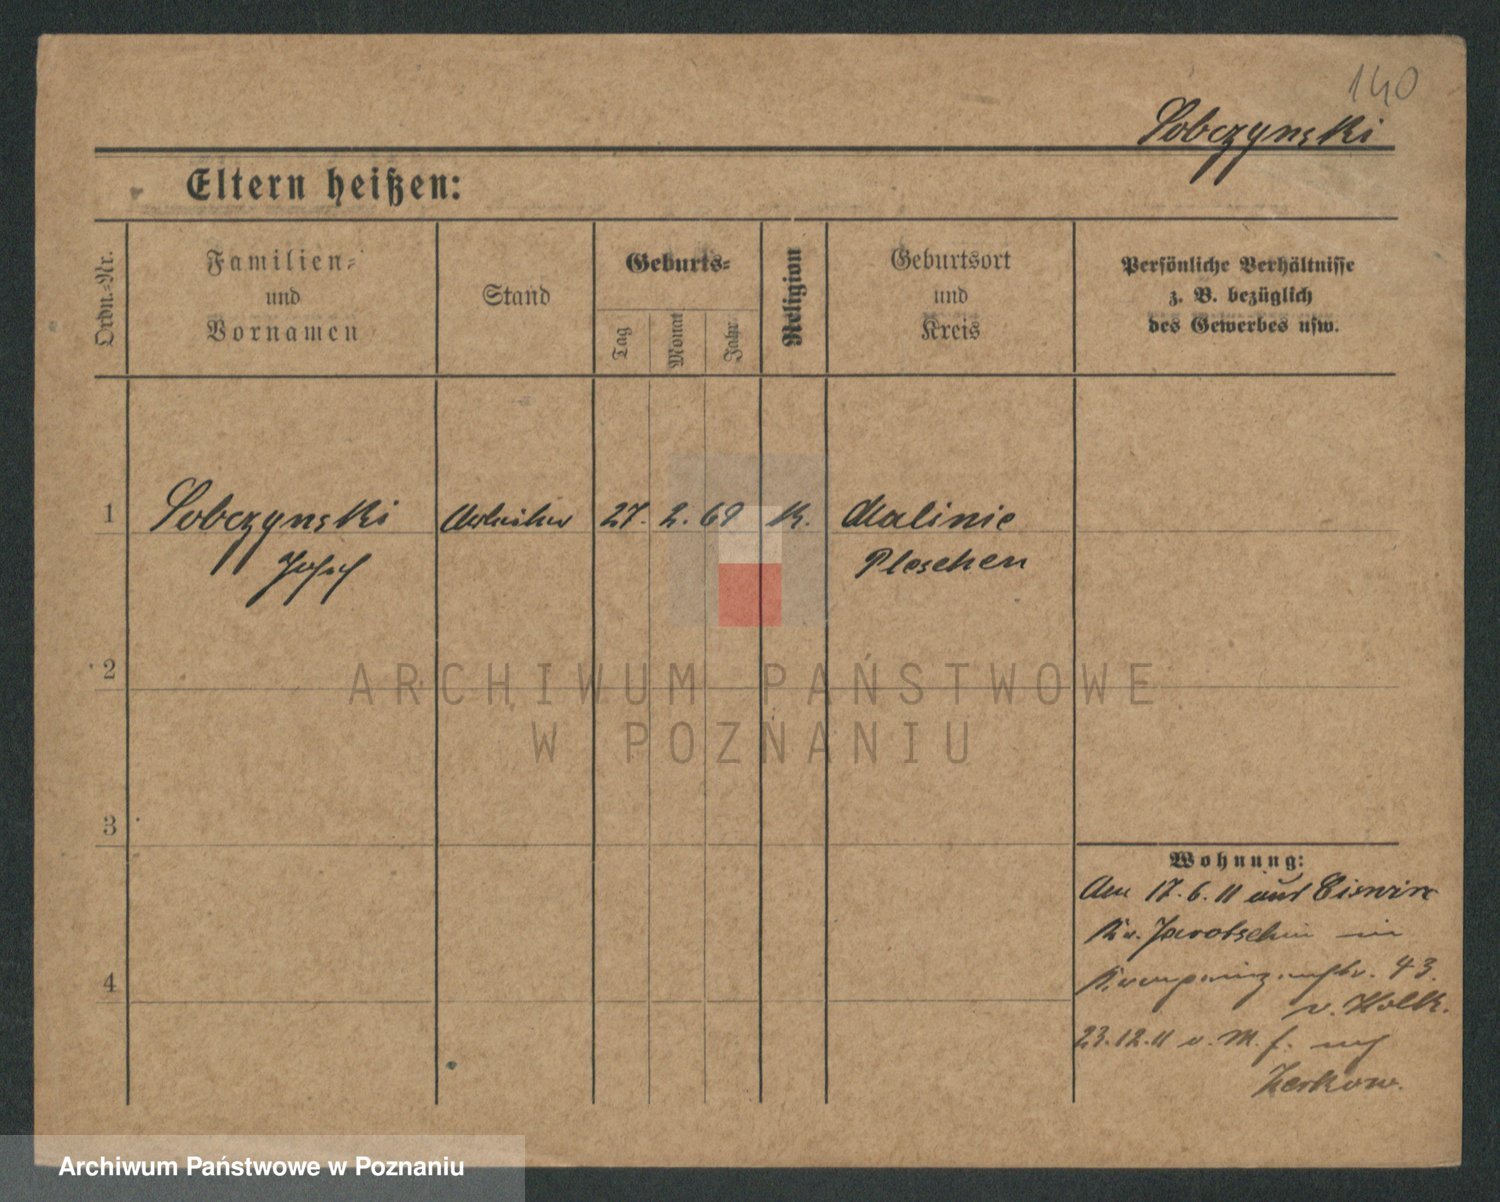 140
Sobczynski
Eltern heißen:
Ordn.-Nr.
Familien-
und
Vornamen
Stand
Geburts-
Tag
Monat
Jahr
Religion
Geburtsort
und
Kreis
Persönliche Verhältnisse
z. B. bezüglich
des Gewerbes usw.
1 Sobczynski Arbeiter 27. 2. 69 K. Malinie
Josef Pleschen
2
ARCHIWUM PAŃSTWOWE
W POZNANIU
3
4
Wohnung:
17.6.11 aus
Jarotschin
43.
23.12.11 v. M. f.
Zerkow.
Archiwum Państwowe w Poznaniu